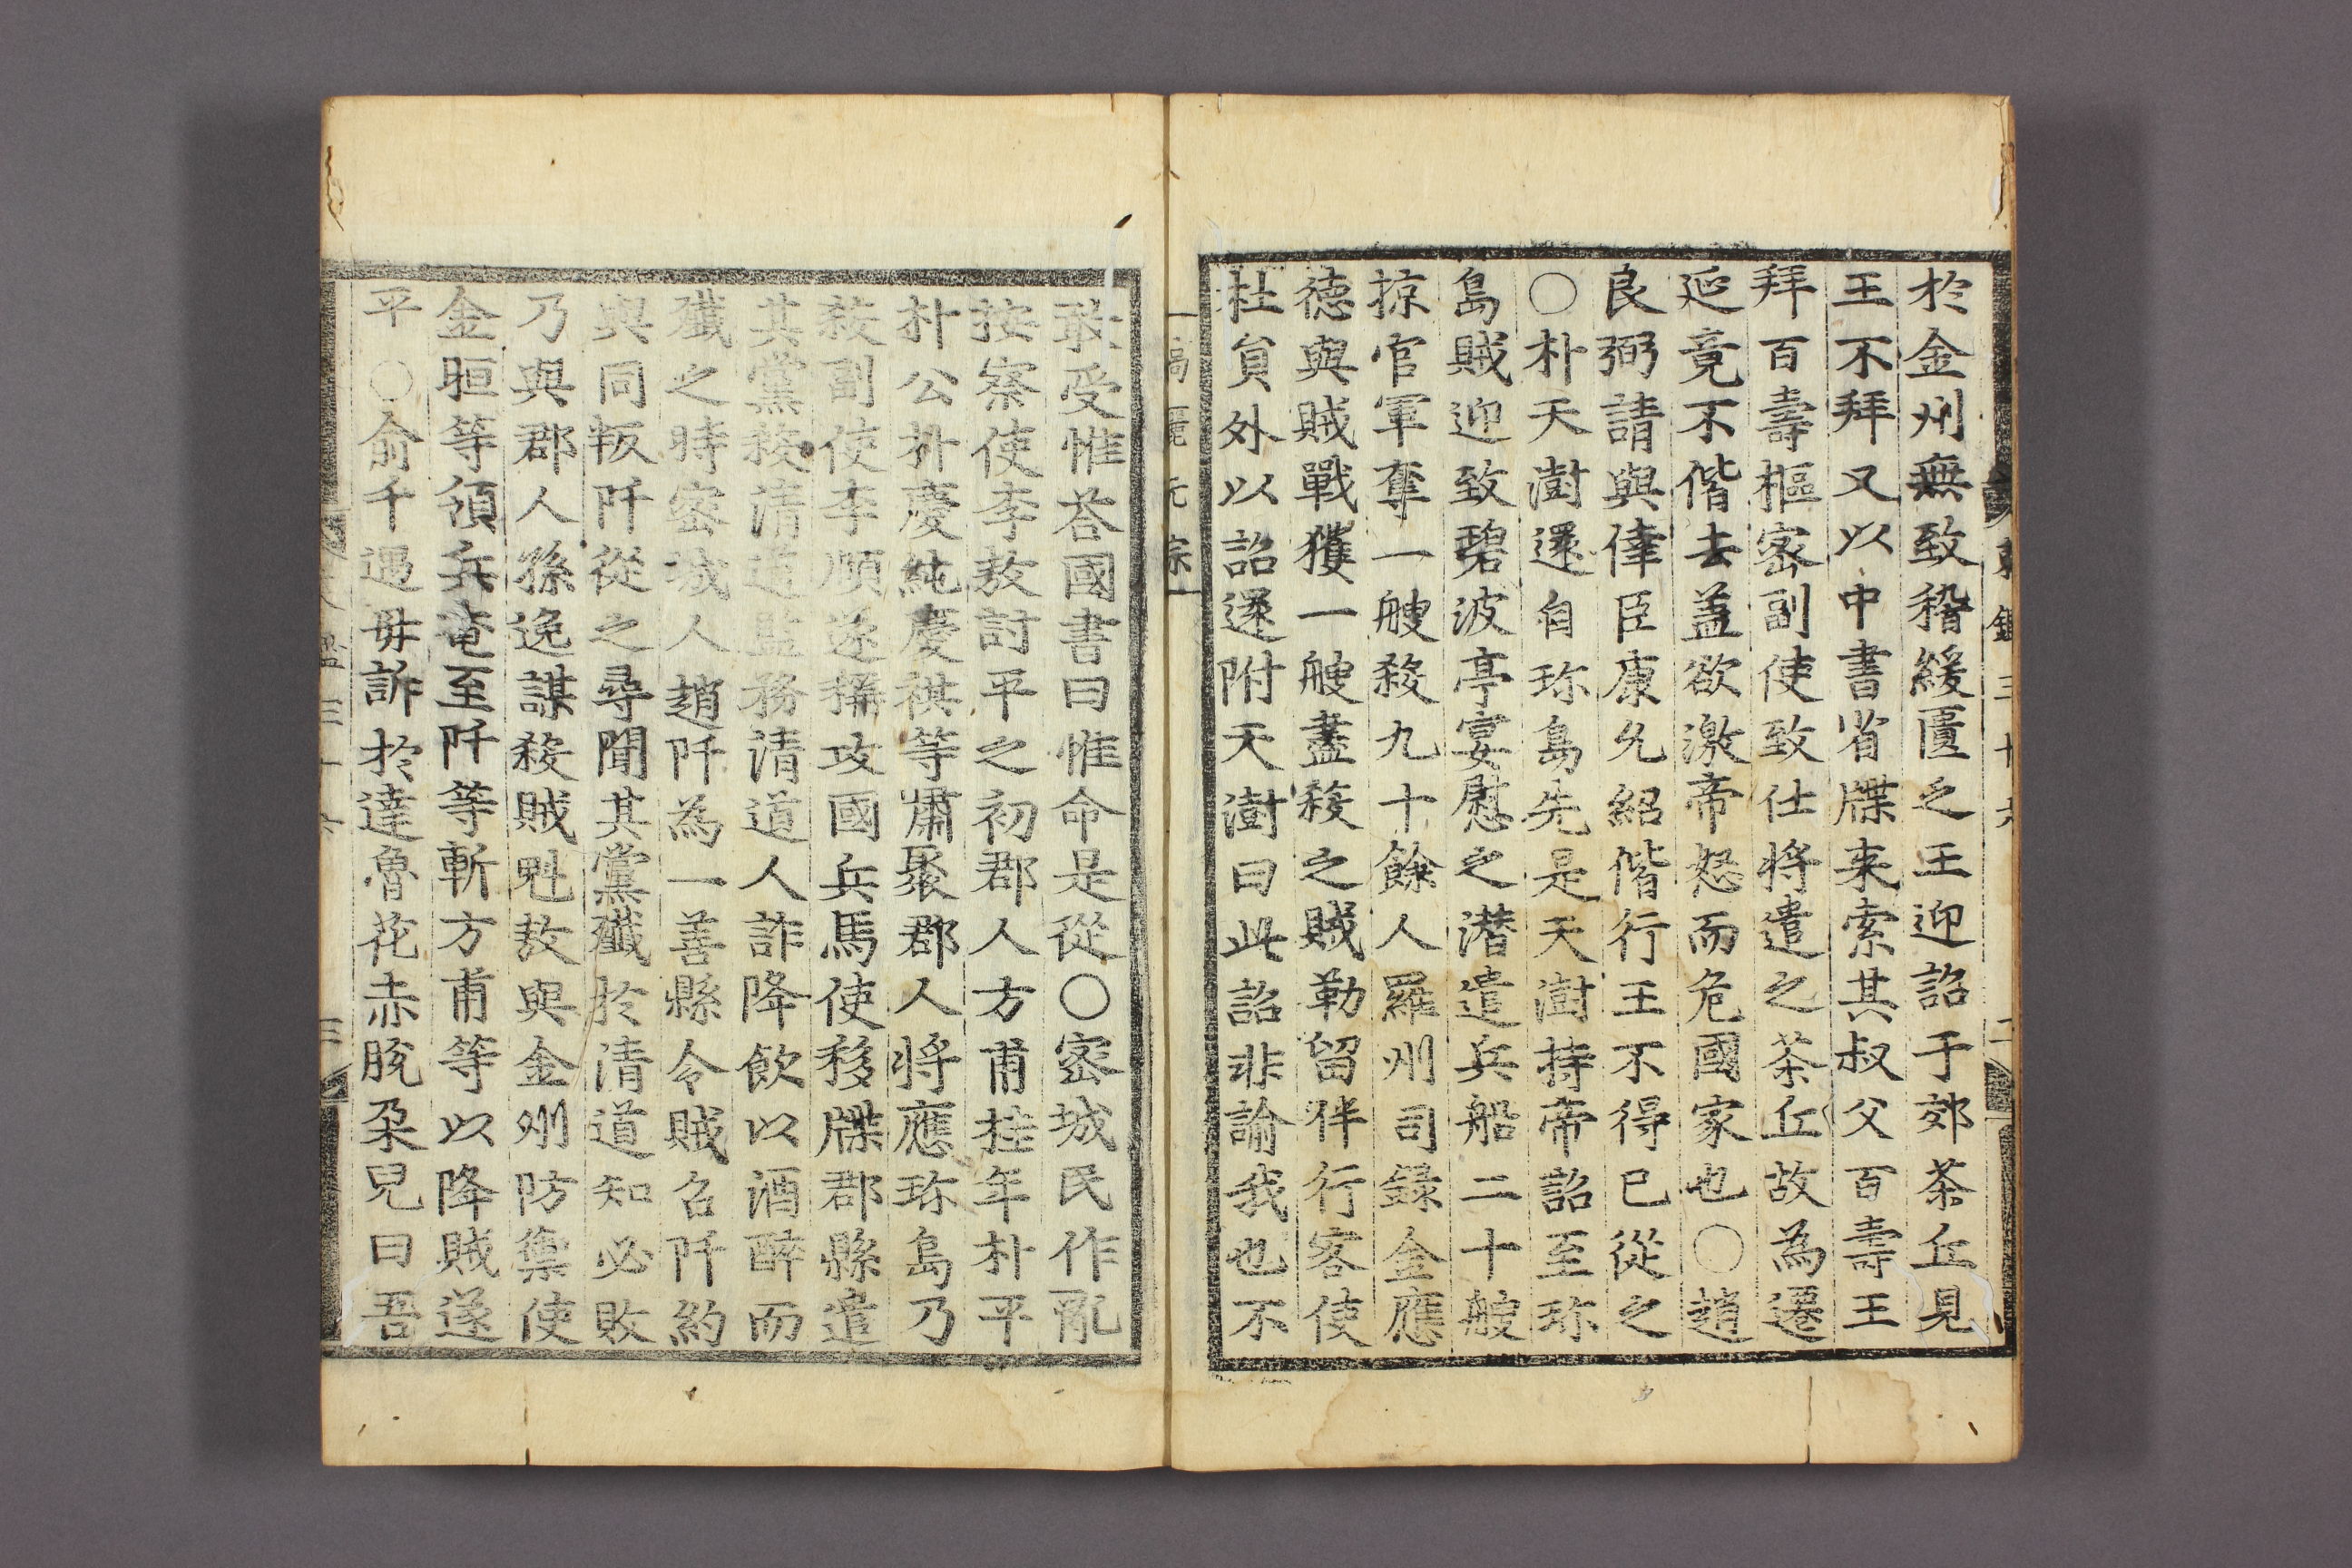 於金州無致稽緩匽之王迎詔于郊茶丘見
王不拜又以中書省牒来索其叔父百壽王
拜百壽樞密副使致仕將遣之茶丘故為遷
延竟不偕去盖欲激帝怒而危國家也〇趙
良弼請與倖臣康允紹偕行王不得已從之
〇朴天澍還自珎島先是天澍持帝詔至珎
島賊迎致碧波亭宴慰之潜遣兵船二十艘
掠官軍奪一艘殺九十餘人羅州司録金應
德與賊戰獲一艘盡殺之賊勒留伴行客使
杜負外以詔還附天澍曰此詔非諭我也不
高麗元宗
敢受惟荅國書曰惟命是從〇密城民作亂
按察使李敖討平之初郡人方甫桂年朴平
朴公朴慶純慶祺等嘯聚郡人将應珎島乃
殺副使李頤遂稱攻國兵馬使移牒郡縣遣
其黨殺清道監務清道人詐降飲以酒醉而
殲之時密城人趙阡為一善縣令賊召阡約
與同叛阡從之尋聞其黨殲於清道知必敗
乃與郡人孫逸謀殺賊魁敖與金州防禦使
金晅等領兵奄至阡等斬方甫等以降賊遂
平〇俞千遇毋訴於達魯花赤脫朶兒曰吾